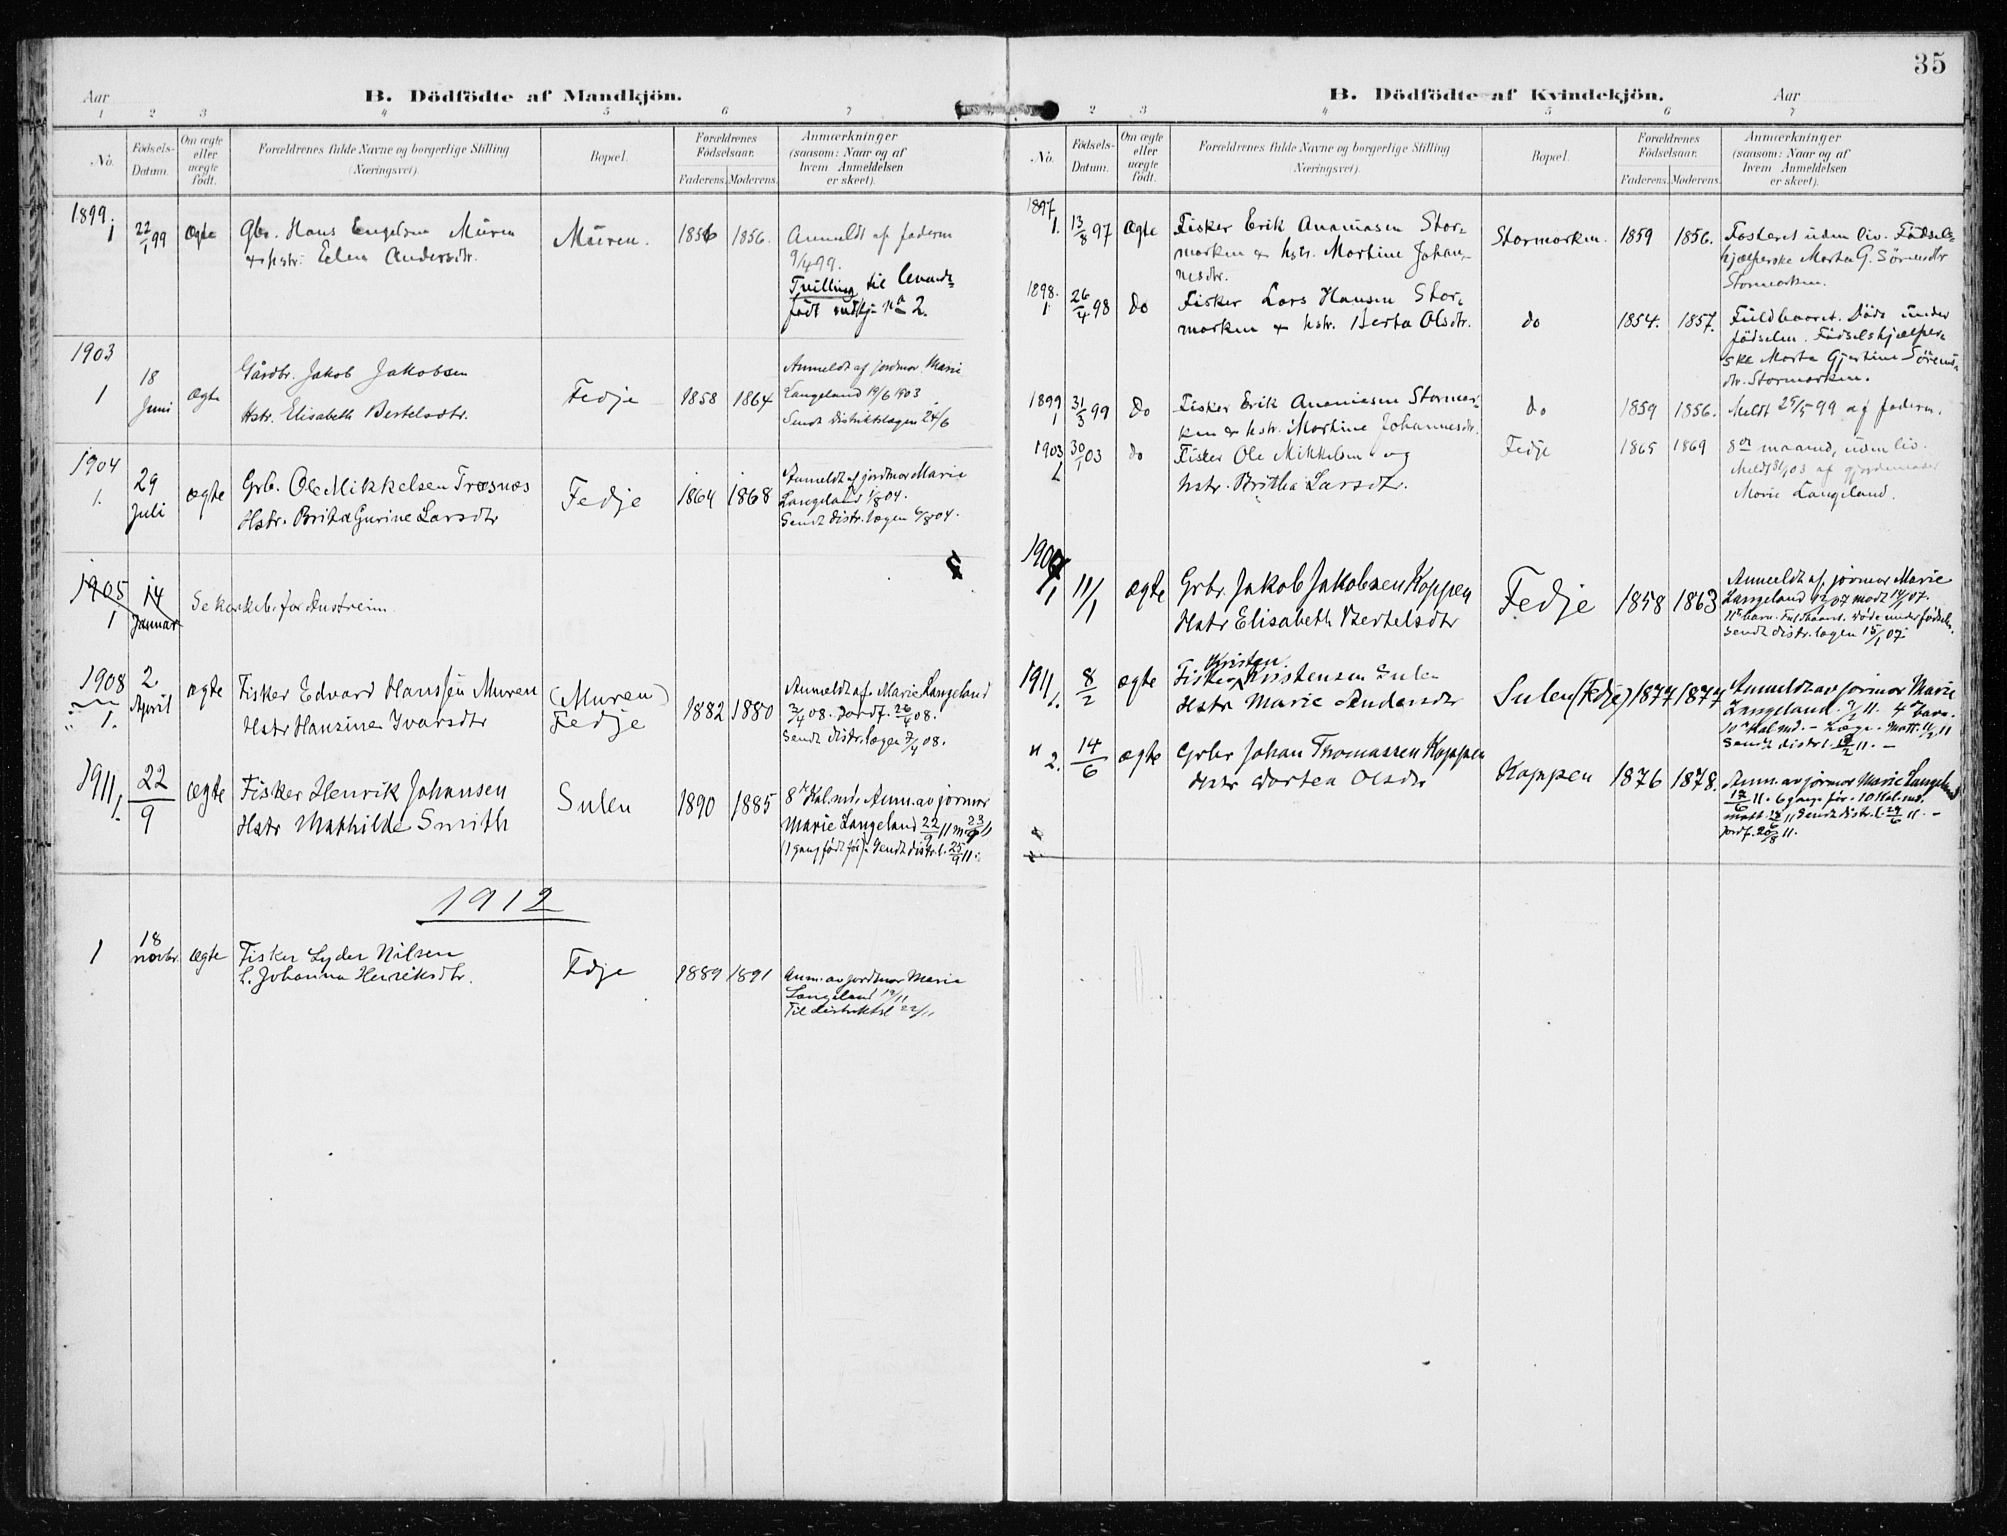 35
Aar
B. Dödfödte af Mandkjön.
1 2 3 4 5 6 7
No.
Födsels-Datum.
Om ægte eller uægte födt.
Forældrenes fulde Navne og borgerlige Stilling (Næringsvei).
Bopæl.
Forældrenes Födselsaar.
Faderens. Moderens.
Anmærkninger (saasom: Naar og af hvem Anmeldelsen er skeet).
1899.
1 22/1 99 Ægte Gbr. Hans Engelsen Muren Müren. 1856 1856. Anmeldt af faderen
+ hstr. Elen Andersdtr. 9/4 99.
Trilling til levende-
født mdkj. nº 2.
1903
1 18 Juni Ægte Gårdbr. Jakob Jakobsen Fedje 1858 1864 Anmeldt af jordmor Marie
Hstr. Elisabeth Bertelsdtr. Langeland 19/6 1903
Sendt distriktslægen 24/6
1904
1. 29 Juli Ægte Grb. Ole Mikkelsen Træsnæs Fedje 1864 1868 Anmeldt af jordmor Marie
Hstr. Brita Gurine Larsdtr Langeland 1/8 04.
Sendt distr. lægen 6/8 04.
1905
1 14 Januar Se kirkeb. for Austreim.
1908
1. 2 April ægte Fisker Edvard Hanssen Muren (Muren) 1882 1880 Anmeldt af Marie Langeland
Hstr Hansine Ivarsdtr Fedje 3/4 08. Jordf. 26/4 08.
Sendt distr. lægen 7/4 08.
1911
1. 22/9 ægte Fisker Henrik Johansen Sulen 1890 1885 8 Kal.md. Anm. av jormor
Hstr Mathilde Smith Marie Langeland 22/9 11 m 23/9 11
(1 gang født før). Sendt distr.l. 25/9 11.
1912
1 18 novbr. ægte Fisker Lyder Nilsen Fedje 1889 1891 Anm. av jordmor Marie
h. Johanna Henriksdtr. Langeland 19/11
Til distriktsl 22/11
B. Dödfödte af Kvindekjön.
Aar
2 3 4 5 6 7
No.
Födsels-Datum.
Om ægte eller uægte födt.
Forældrenes fulde Navne og borgerlige Stilling (Næringsvei).
Bopæl.
Forældrenes Födselsaar.
Faderens. Moderens.
Anmærkninger (saasom: Naar og af hvem Anmeldelsen er skeet).
1897
1. 13/8 97 Ægte Fisker Erik Ananiasen Stor- Stormarken. 1859 1856. Fosteret uden liv. Fødsels-
marken + hstr. Martine Johan- hjælperske Marta G. Sörensdtr
nesdtr. Stormarken.
1898.
1 26/4 98 do Fisker Lars Hansen Stor- do 1854. 1857. Fuldbaaret. Døde under
marken + hstr. Berta Olsdtr. fødselen. Fødselshjælper-
ske Marta Gjertine Sørens-
dtr. Stormarken.
1899
1 31/3 99 Do Fisker Erik Ananiasen Stormar- do 1859 1856. Meldt 25/5 99 af faderen.
ken & hstr. Martine Johannesdtr.
1903
1 30/1 03 do Fisker Ole Mikkelsen og Fedje 1865 1869 8de maaned, uden liv.
hstr. Britha Larsdtr. Meldt 31/1 03 af gjordemoder
Marie Langeland.
1907
1 11/1 ægte Grbr. Jakob Jakobsen Koppen Fedje 1858 1863 Anmeldt af jormor Marie
Hstr Elisabeth Bertelsdtr Langeland 12/1 07 modt 14/1 07.
11te barn. Fuldbaaret. Døde under fødselen.
Sendt distr. lægen 15/1 07.
1911
1. 8/2 ægte Fisker Kristen Kristensen Sulen Sulen (Fedje) 1874 1877 Anmeldt av jormor Marie
Hstr Marie Andersdtr Langeland 9/2 11. 4de barn.
10 Kal.md. – Læge –
Sendt distr.l. 11. –
" 2. 14/6 ægte Grbr Johan Thomassen Koppen Koppen 1876 1878. Anm. av jormor Marie Langeland
Hstr Dortea Olsdtr 17/6 11. 6 gange før. 10 Kal.md.
Sendt distr.l. 29/6 11. –
Jordf. 20/8 11.